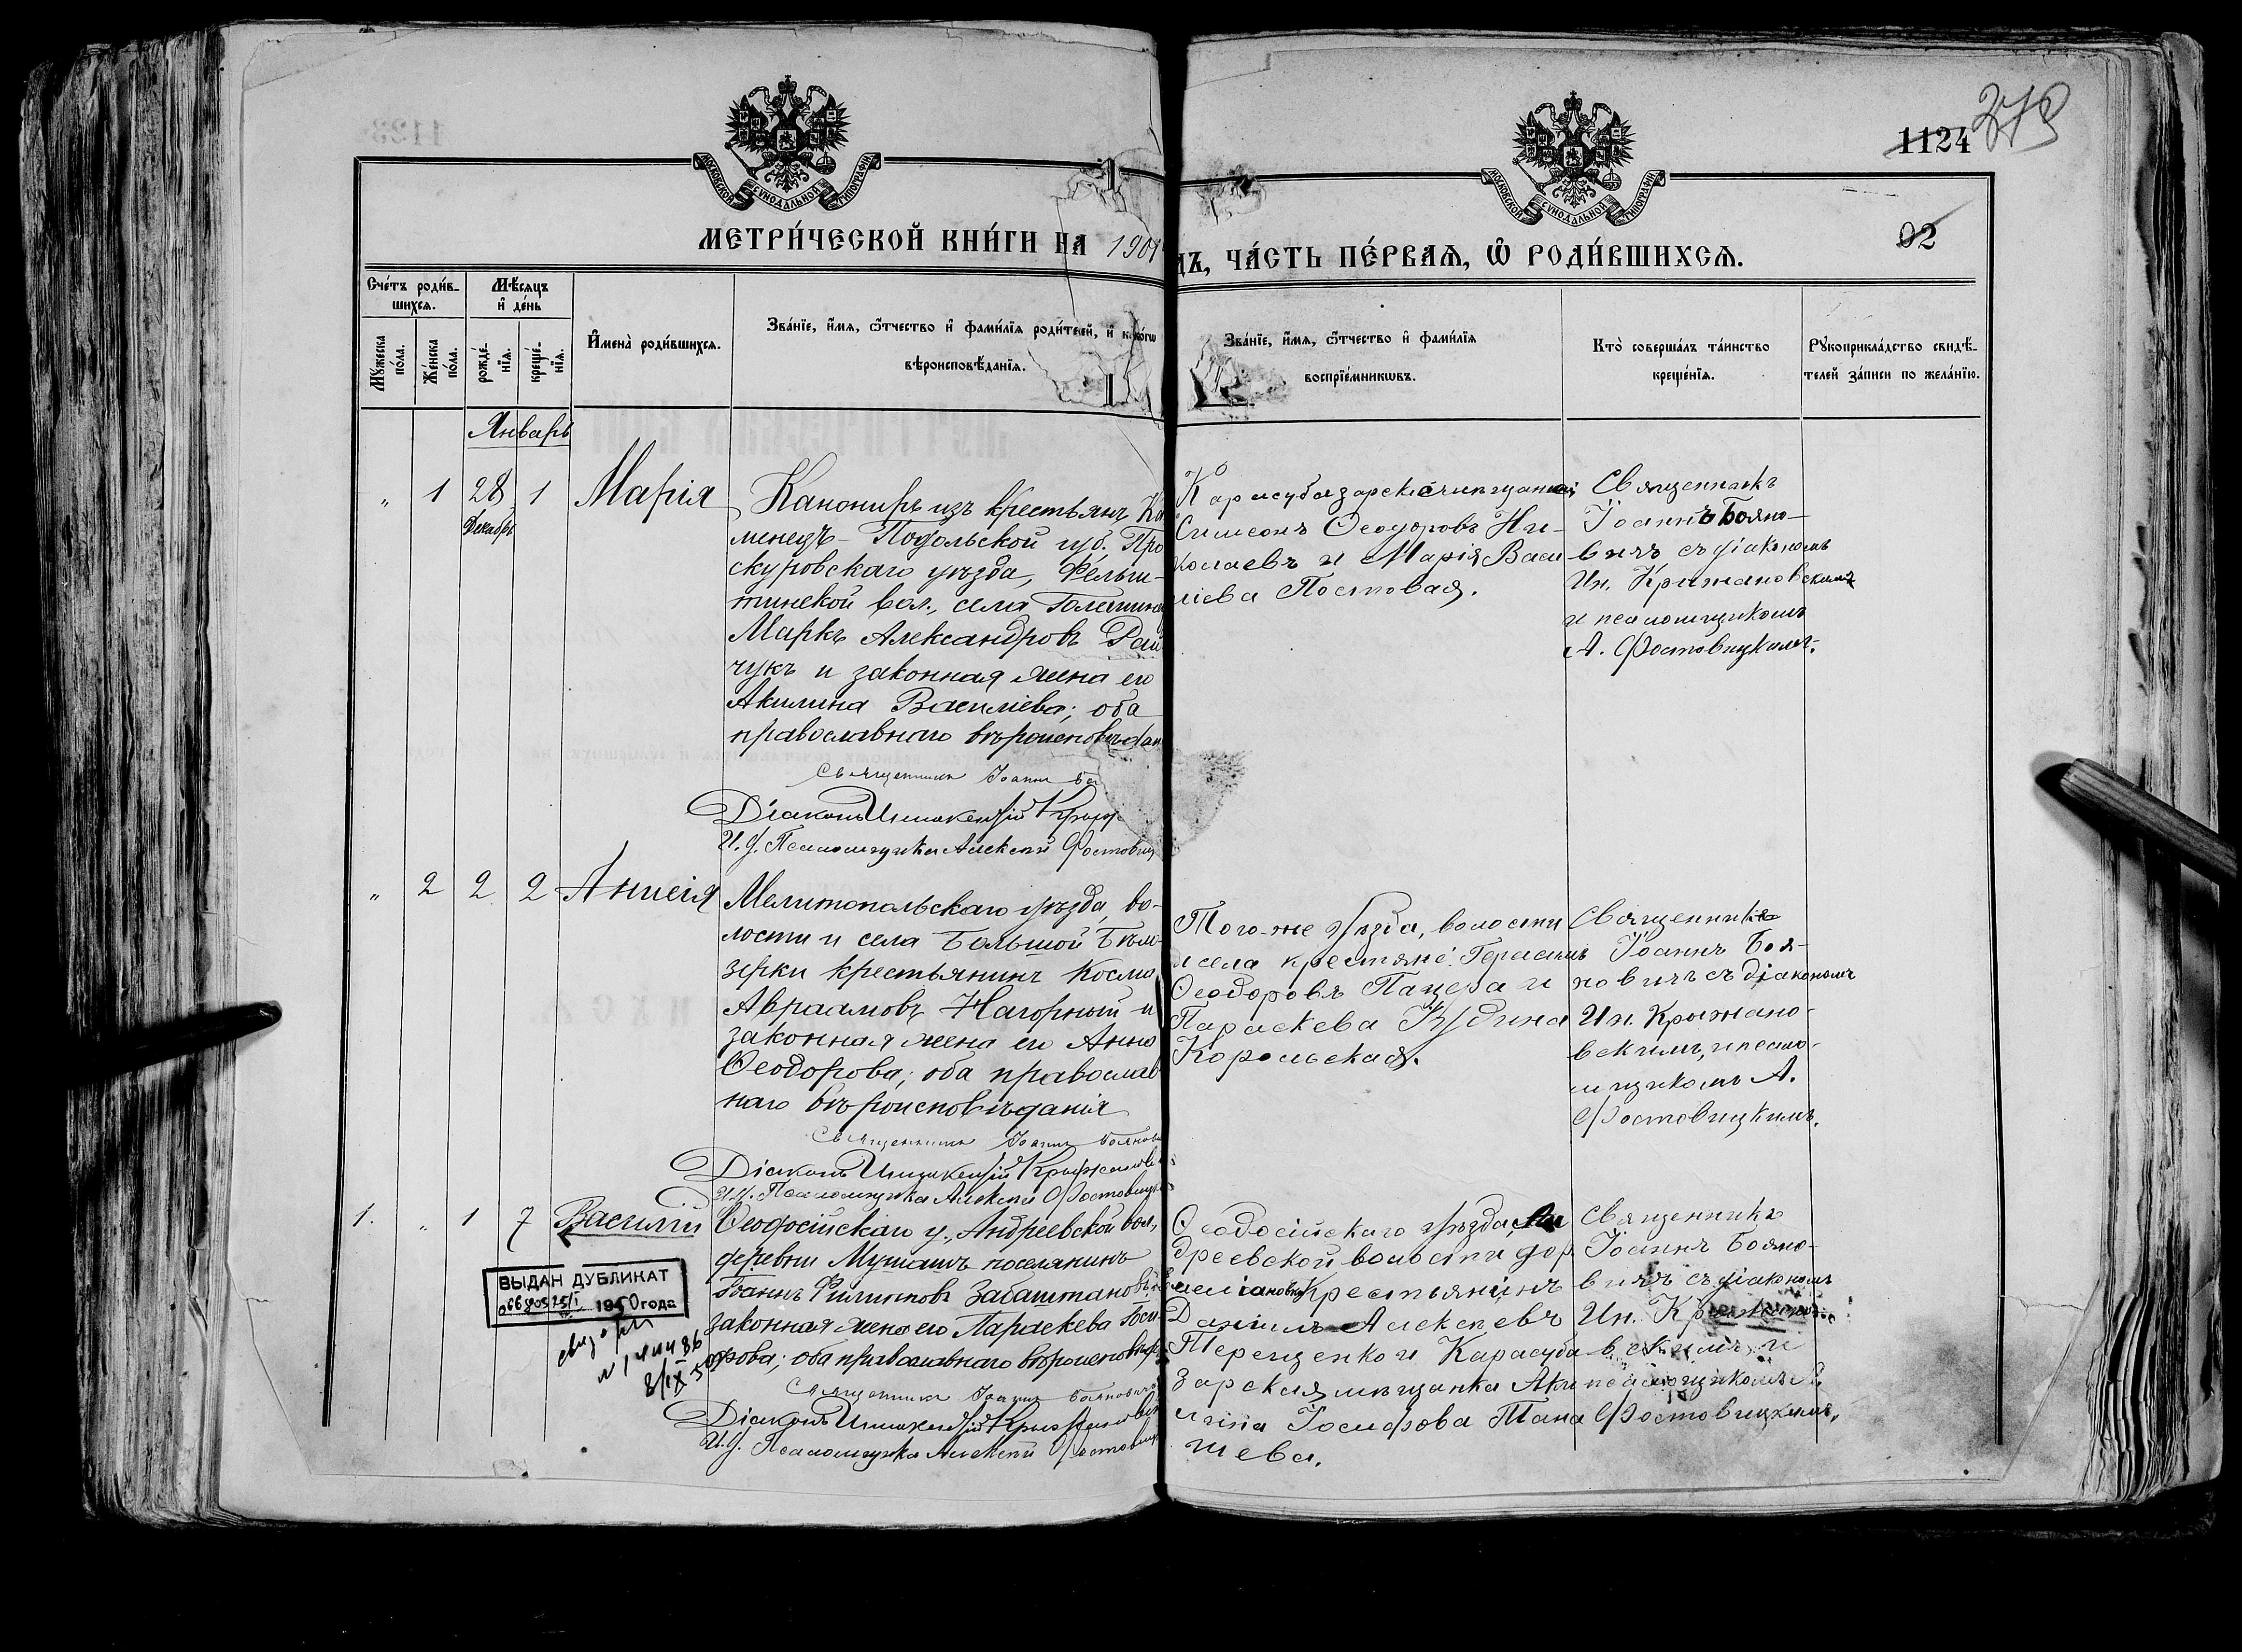 1124 279
МОСКОВСКОЙ СѴНОДАЛЬНОЙ ТИПОГРАФІИ
МОСКОВСКОЙ СѴНОДАЛЬНОЙ ТИПОГРАФІИ
02
МЕТРИ́ЧЕСКОЙ КНИ́ГИ НА 1901
ДЪ, ЧА́СТЬ ПЕ́РВАЯ, Ѡ РОДИ́ВШИХСЯ.
Сче́тъ роди́в-
шихся.
Мѣ́сяцъ
и҆ де́нь
Мꙋ́жеска
по́ла.
Же́нска
по́ла.
рожде́-
нїя.
креще́-
нїя.
И҆мена̀ роди́вшихся.
Зва́нїе, и҆́мя, ѻ҆́тчество и҆ фами́лїя роди́телей, и҆ како́гѡ
вѣроисповѣ́данїя.
Зва́нїе, и҆́мя, ѻ҆́тчество и҆ фами́лїя
воспрїе́мникѡвъ.
Кто̀ соверша́лъ та́инство
креще́нїя.
Рꙋкоприкла́дство свидѣ́-
телей за́писи по жела́нїю.
Январь
" 1 28 1 Марія
Декабрь
Канониръ изъ крестьянъ Ка
менецъ-Подольской губ. Про
скуровскаго уѣзда, Фельш-
тинской вол., села
Маркъ Александровъ
чукъ и законная жена его
Акилина Василіева; оба
православнаго вѣроисповѣдан
Священникъ Іоаннъ Бо
Діаконъ Иннокентій Крыж
И. д. Псаломщика Алексѣй Ростовиц
Карасубазарскій мѣщанинъ
Симеонъ Ѳеодоровъ Ни-
колаевъ и Марія Васи
ліева Постовая.
Священникъ
Іоаннъ Бояно-
вичъ съ діакономъ
Ин. Крыжановскимъ
и псаломщикомъ
А. Ростовицкимъ.
" 2 2 2 Анисія
Мелитопольскаго уѣзда, во-
лости и села Большой Бѣло-
зерки крестьянинъ Косма
Авраамовъ Нагорный и
законная жена его Анна
Ѳеодорова; оба православ
наго вѣроисповѣданія
Священникъ Іоаннъ Боянов
Діаконъ Иннокентій Крыжановс
И. д. Псаломщика Алексѣй Ростовиц
Того-же уѣзда, волости
и села крестяне: Герасимъ
Ѳеодоровъ Пацера и
Параскева
Корольская.
Священникъ
Іоаннъ Боя-
новичъ съ діакономъ
Ин. Крыжано-
вскимъ, и псало-
мщикомъ А.
Ростовицкимъ.
1. " 1 7 Василій
Ѳеодосійскаго у., Андреевской вол.,
деревни Мушашъ поселянинъ
Іоаннъ Филипповъ Забаштановъ и
законная жена его Параскева
оба православнаго вѣроисповѣд
Священникъ Іоаннъ Бояновичъ
Діаконъ Иннокентій Крыжановс
И. д. Псаломщика Алексѣй Ростовиц
ВЫДАН ДУБЛИКАТ
1950 года
8/IX 50
Ѳеодосійскаго уѣзда, Ан
дреевской волости дер.
крестьянинъ
Даніилъ Алексѣевъ
Терещенко и Карасуба
зарская мѣщанка Аки
лина Іосифова Тана
шева.
Священникъ
Іоаннъ Бояно-
вичъ съ діакономъ
Ин. Крыжано-
вскимъ и
псаломщикомъ А.
Ростовицкимъ.